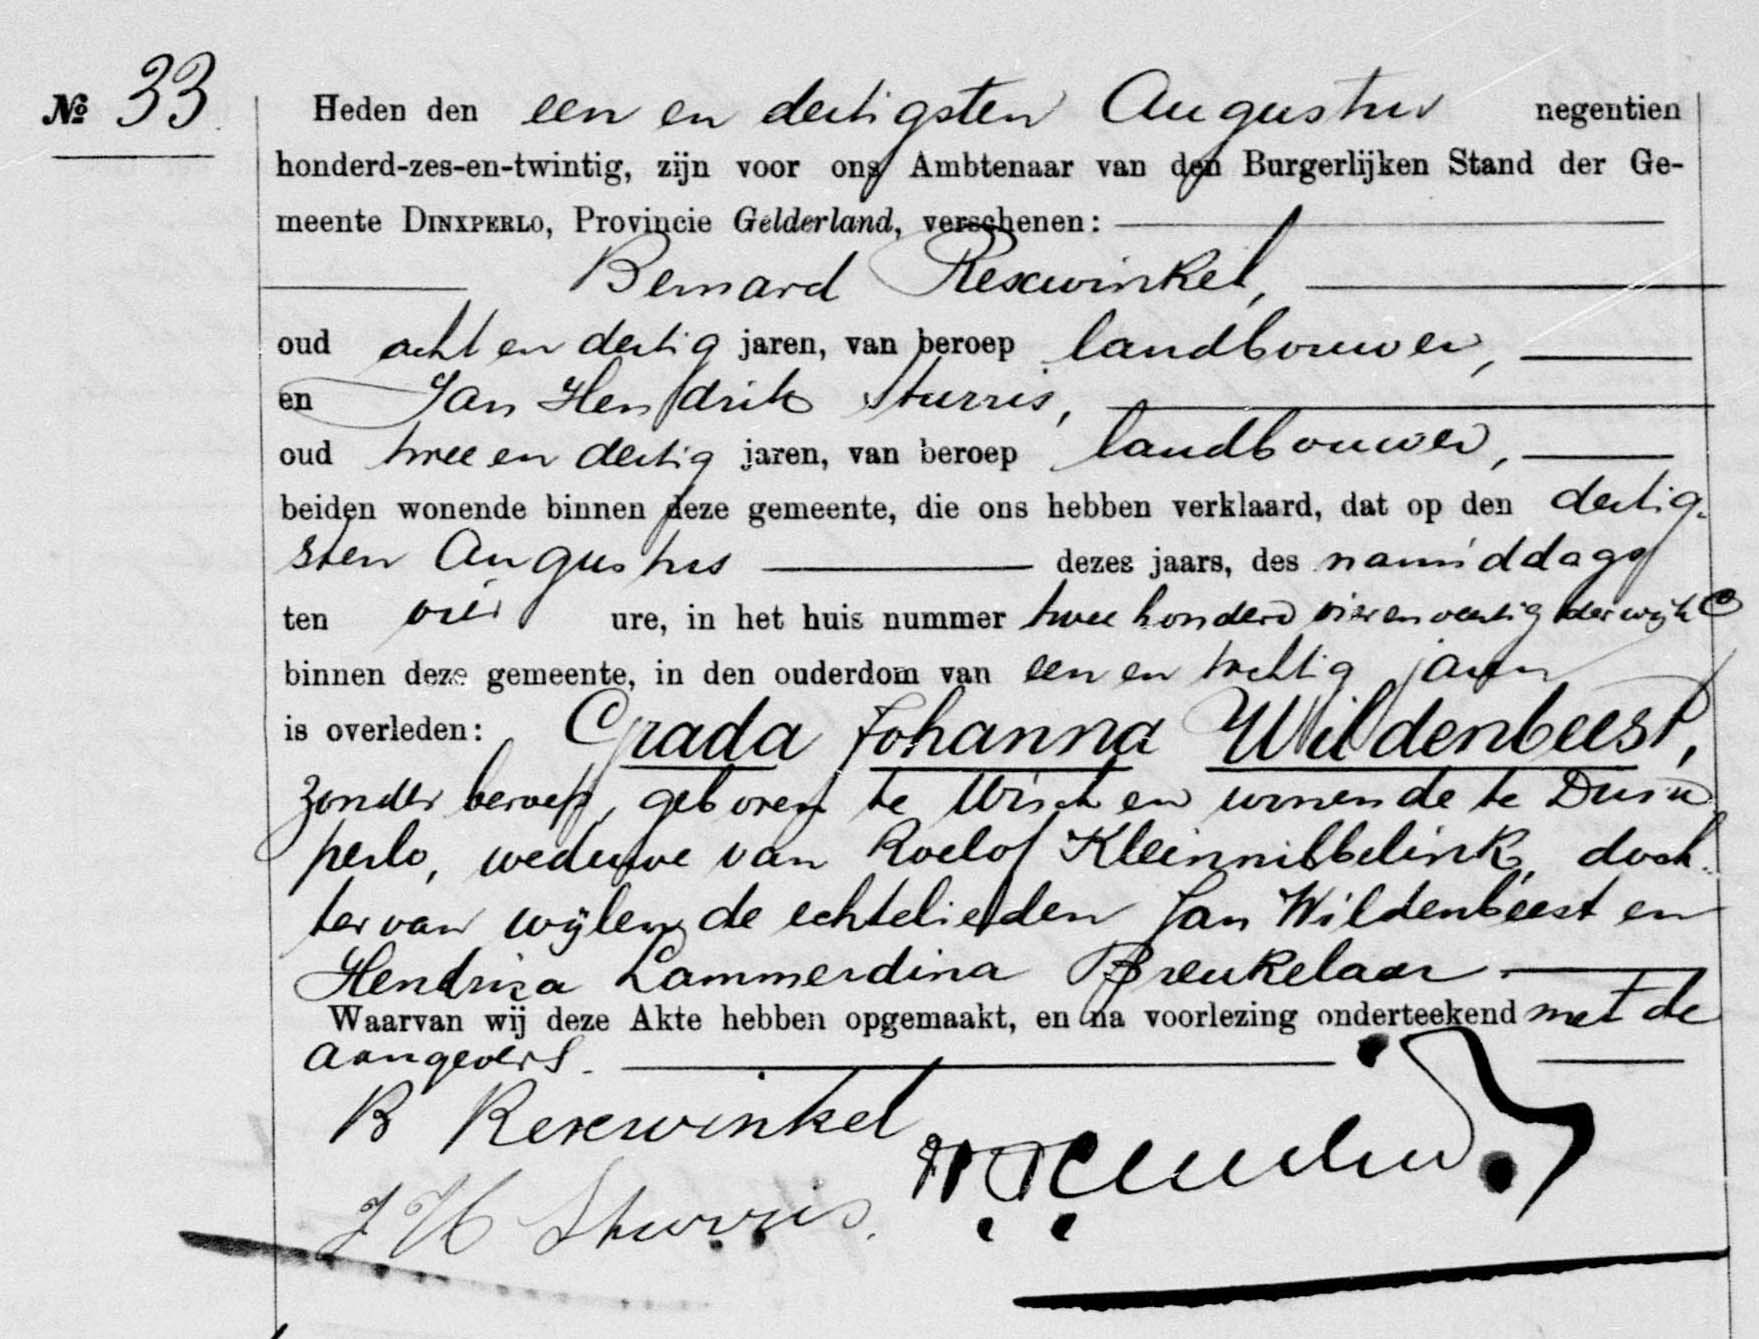 № 33
Heden den een en dertigsten Augustus negentien
honderd-zes-en-twintig, zijn voor ons Ambtenaar van den Burgerlijken Stand der Ge-
meente DINXPERLO, Provincie Gelderland, verschenen:
Bernard Rexwinkel,
oud acht en dertig jaren, van beroep landbouwer,
en Jan Hendrik Sturris,
oud twee en dertig jaren, van beroep landbouwer,
beiden wonende binnen deze gemeente, die ons hebben verklaard, dat op den dertig-
sten Augustus dezes jaars, des namiddags
ten vier ure, in het huis nummer twee honderd vier en veertig der wijk C
binnen deze gemeente, in den ouderdom van een en tachtig jaren
is overleden: Grada Johanna Wildenbeest,
zonder beroep, geboren te Wisch en wonende te Dinx-
perlo, weduwe van Roelof Kleinnibbelink, doch-
ter van wijlen de echtelieden Jan Wildenbeest en
Hendrica Lammerdina Breukelaar
Waarvan wij deze Akte hebben opgemaakt, en na voorlezing onderteekend met de
aangevers.
B Rexwinkel
J H Sturris.